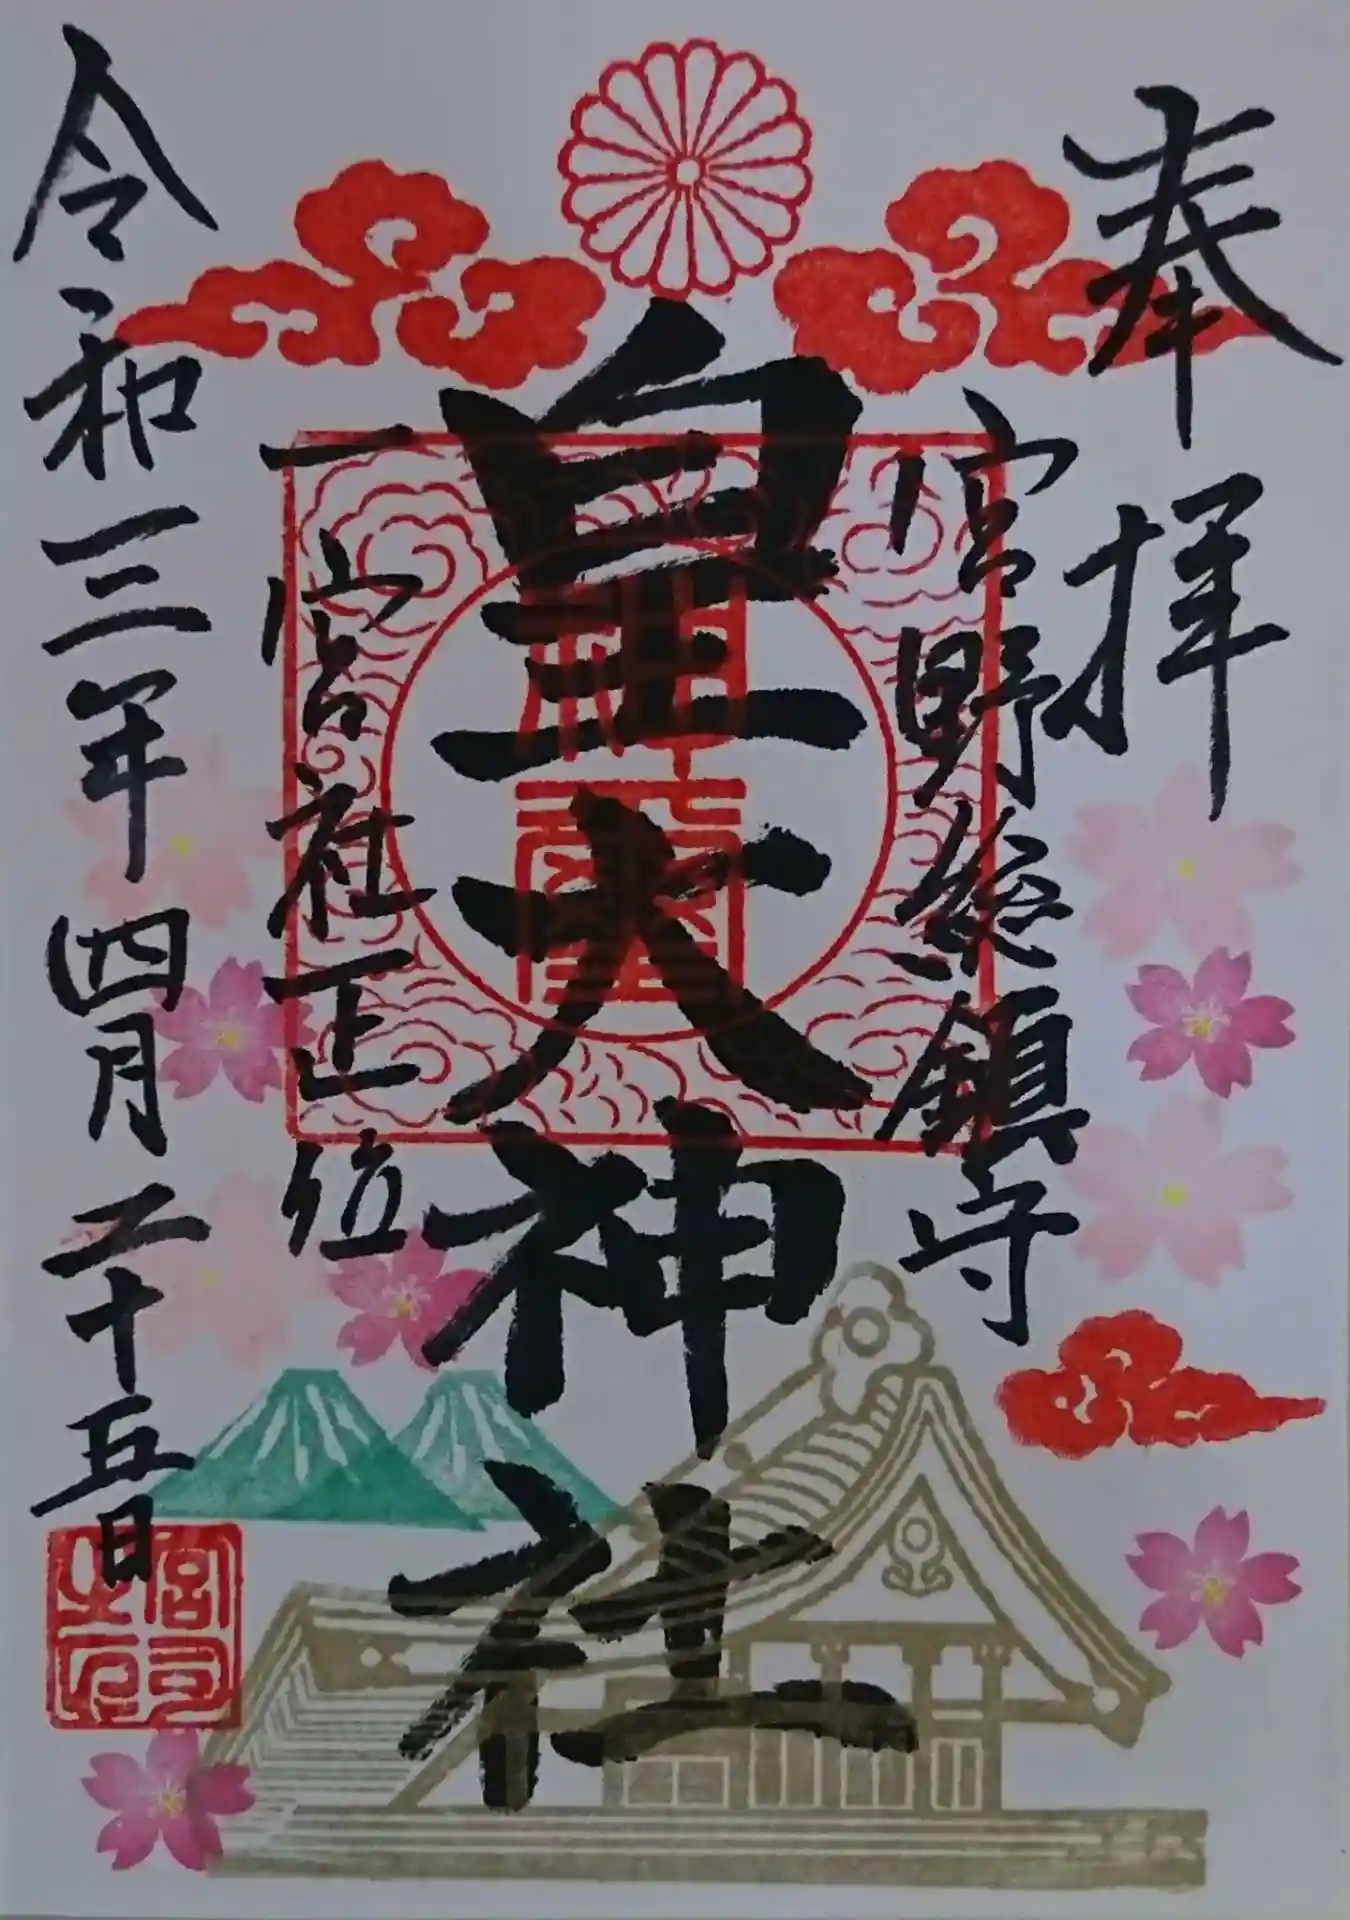 奉拝
宮野総鎮守
皇大神社
一宮社正位
令和三年四月二十五日
宮司之印